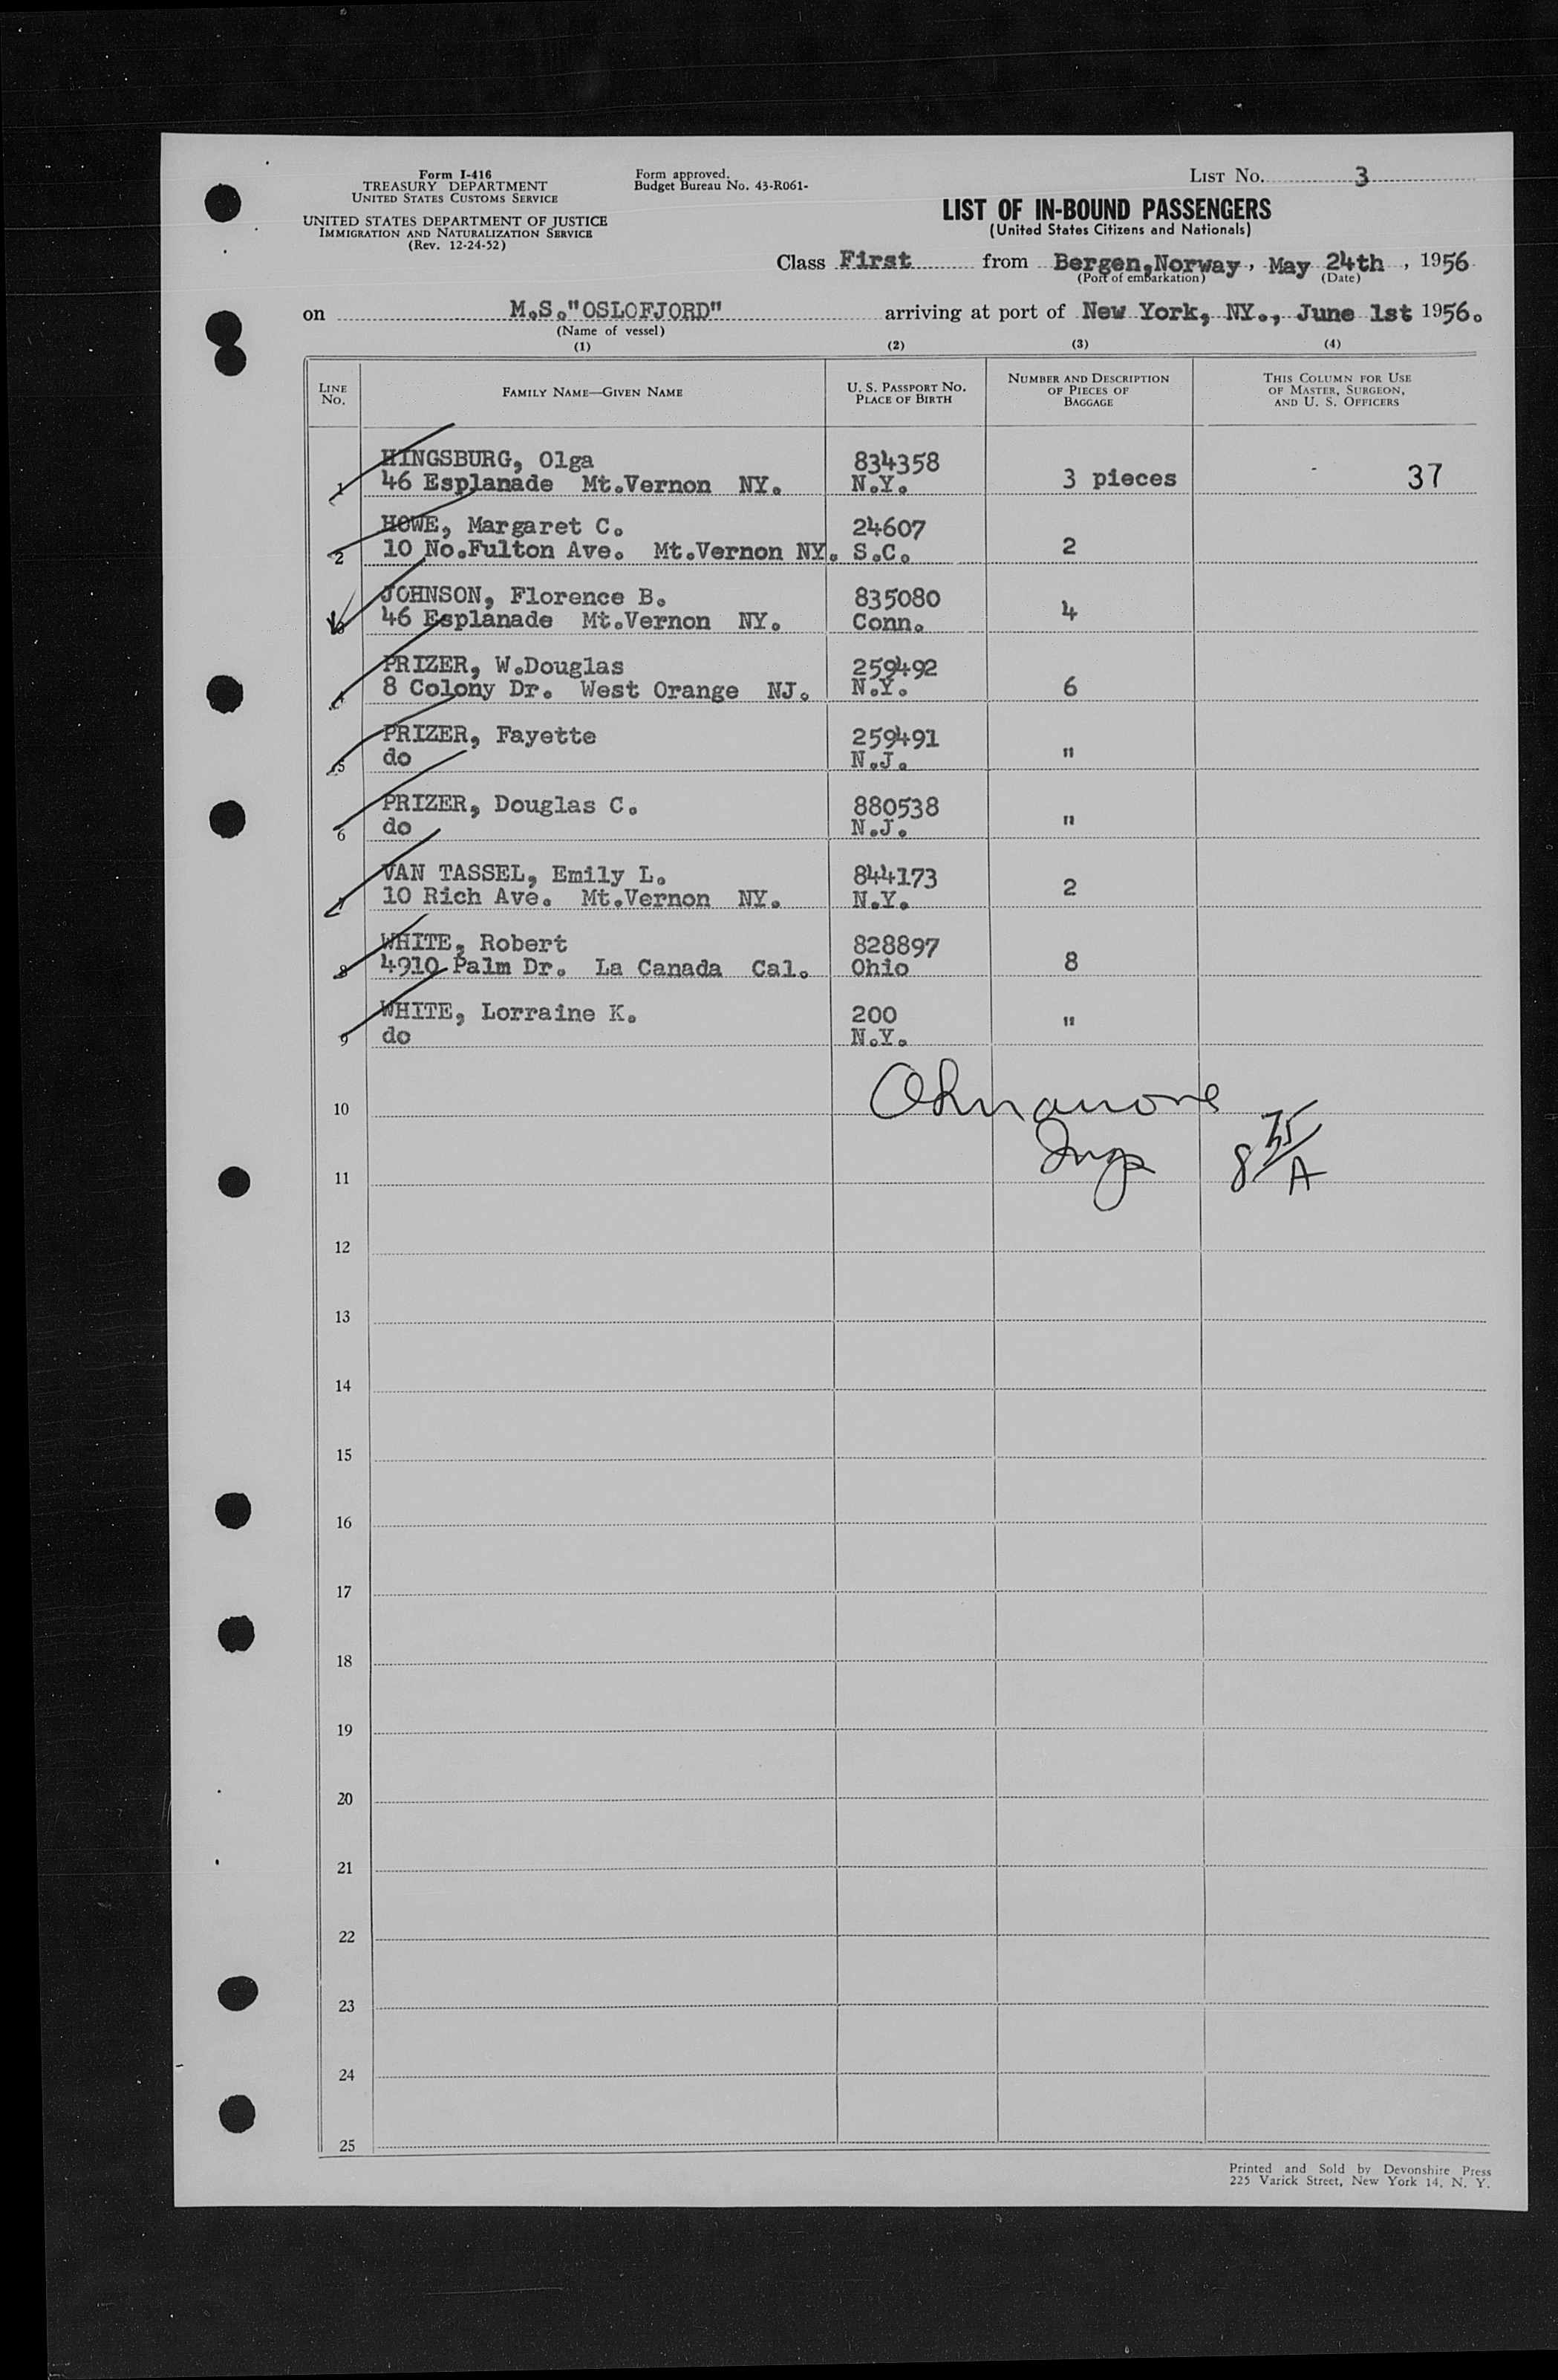 Form I-416
TREASURY DEPARTMENT
UNITED STATES CUSTOMS SERVICE
UNITED STATES DEPARTMENT OF JUSTICE
IMMIGRATION AND NATURALIZATION SERVICE
(Rev. 12-24-52)
Form approved.
Budget Bureau No. 43-R061-
LIST NO. 3
LIST OF IN-BOUND PASSENGERS
(United States Citizens and Nationals)
Class First from Bergen,Norway, May 24th, 1956
(Port of embarkation) (Date)
on M.S."OSLOFJORD" arriving at port of New York, NY., June 1st 1956.
(Name of vessel)
(1) (2) (3) (4)
LINE No. FAMILY NAME—GIVEN NAME U. S. PASSPORT NO. PLACE OF BIRTH NUMBER AND DESCRIPTION OF PIECES OF BAGGAGE THIS COLUMN FOR USE OF MASTER, SURGEON, AND U. S. OFFICERS
HINGSBURG, Olga 834358
1 46 Esplanade Mt.Vernon NY. N.Y. 3 pieces 37
HOWE, Margaret C. 24607
2 10 No.Fulton Ave. Mt.Vernon NY. S.C. 2
JOHNSON, Florence B. 835080
3 46 Esplanade Mt.Vernon NY. Conn. 4
PRIZER, W.Douglas 259492
4 8 Colony Dr. West Orange NJ. N.Y. 6
PRIZER, Fayette 259491
5 do N.J. "
PRIZER, Douglas C. 880538
6 do N.J. "
VAN TASSEL, Emily L. 844173
7 10 Rich Ave. Mt.Vernon NY. N.Y. 2
WHITE, Robert 828897
8 4910 Palm Dr. La Canada Cal. Ohio 8
WHITE, Lorraine K. 200
9 do N.Y. "
10
11
12
13
14
15
16
17
18
19
20
21
22
23
24
25
Printed and Sold by Devonshire Press
225 Varick Street, New York 14, N. Y.